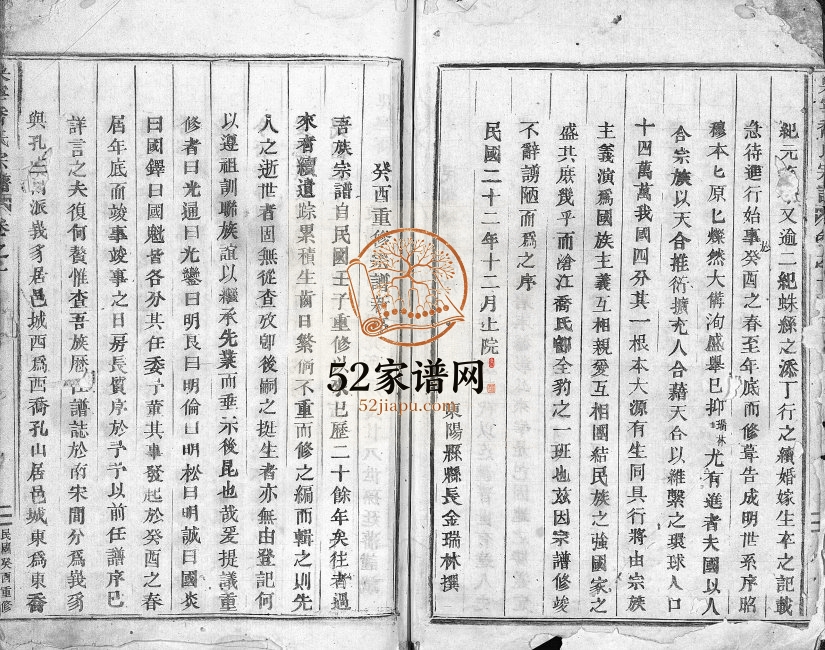 紀元 又逾二紀蛛絲之添丁行之續婚嫁生卒之記載
急待進行始事於癸酉之春至年底而修葺告成明世系序昭
穆本匕原匕燦然大備洵盛舉已抑瑞林尤有進者夫國以人
合宗族以天合推衍擴充人合藉天合以維繫之環球人口
十四萬萬我國四分其一根本大源有生同具行將由宗族
主義演爲國族主義互相親愛互相團結民族之強國家之
盛其庶幾乎而滄江喬氏卽全豹之一班也玆因宗譜修竣
不辭謭陋而爲之序
民國二十二年十二月上院
東陽縣縣長金瑞林撰
癸酉重修宗譜新序
吾族宗譜自民國壬子重修以來已歷二十餘年矣往者過
來者續遺踪累積生齒日繁倘不重而修之編而輯之則先
人之逝世者固無從查攷卽後嗣之挺生者亦無由登記何
以遵祖訓聯族誼以繼承先業而垂示後昆也哉爰提議重
修者曰光通曰光鑾曰明良曰明倫曰明松曰明誠曰國炎
曰國鐸曰國魁皆各分其任委予董其事發起於癸酉之春
屆年底而竣事竣事之日房長質序於予予以前任譜序已
詳言之夫復何贅惟查吾族歷 巳譜誌於南宋間分爲義豸
與孔山 派義豸居邑城西爲西喬孔山居邑城東爲東喬
民國癸酉重修
52家谱网
52jiapu.com